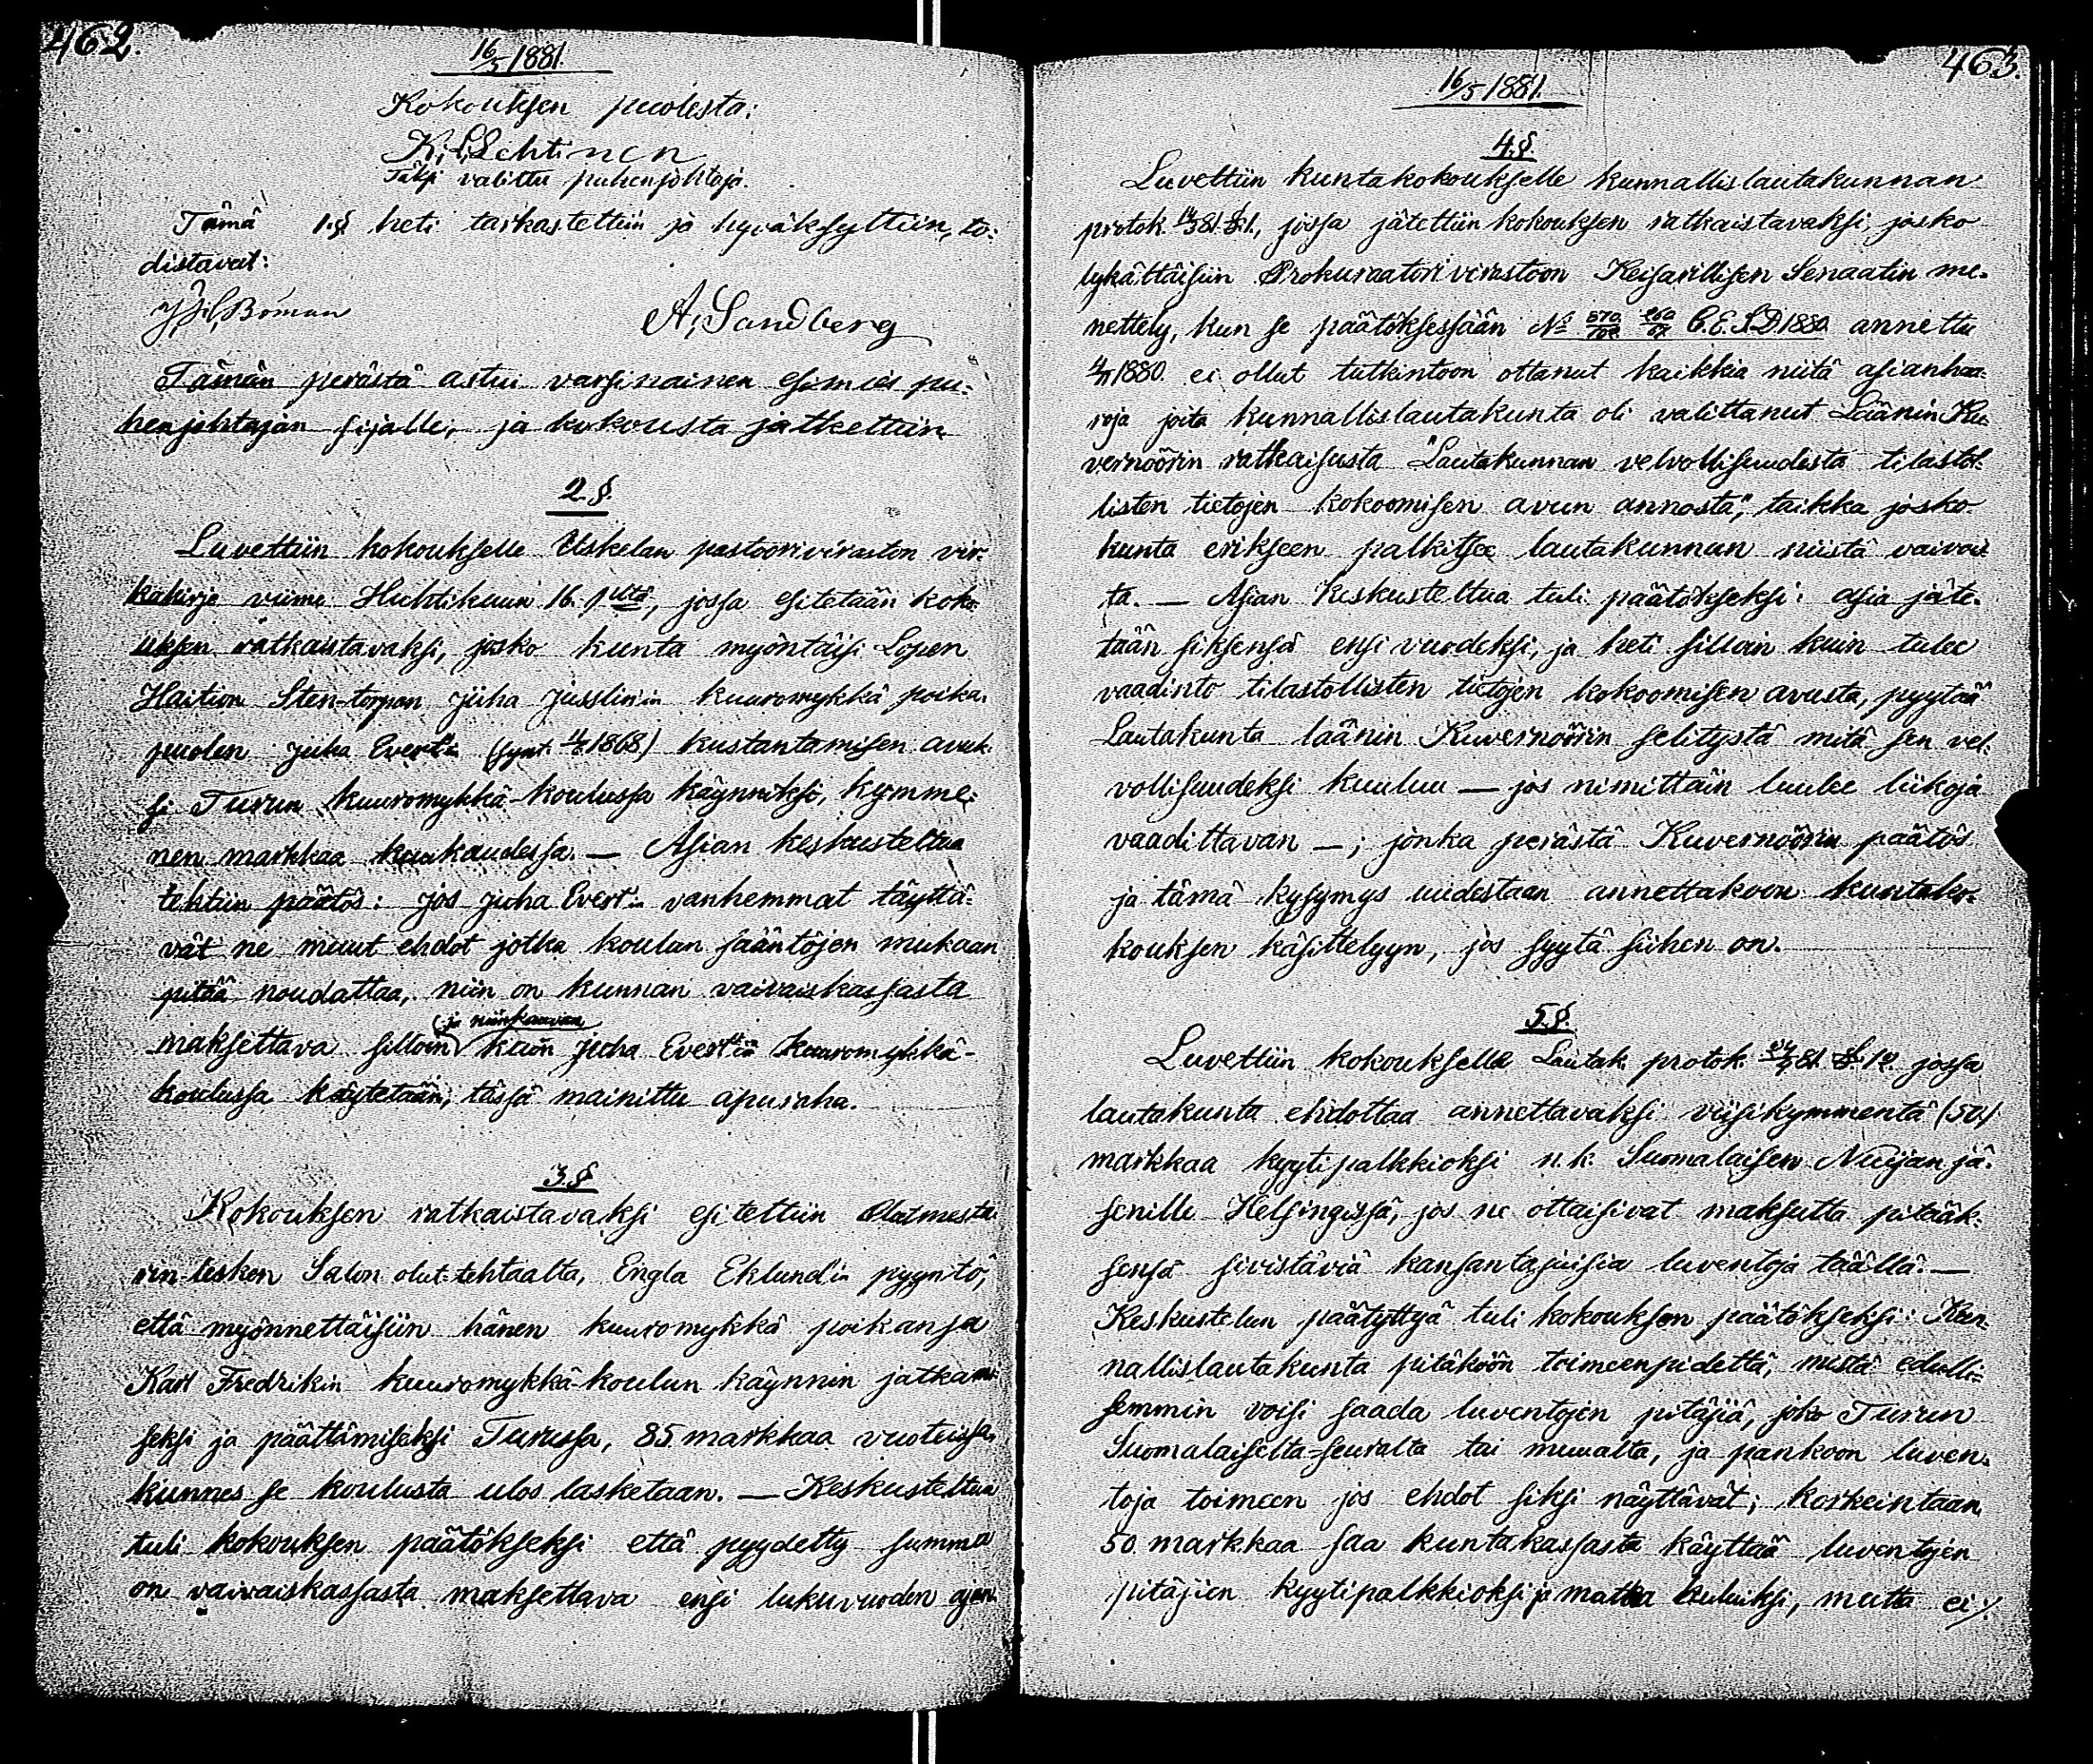 462.
16/5 1881.
Kokouksen puolesta:
K. Lehtinen
Täksi valittu puhenjohtaja.
Tämä 1.§ heti tarkastettiin ja hyväksyttiin, to-
distavat:
Boman
A. Sandberg
Tämän perästä astui varsinainen esimies pu-
henjohtajan sijalle, ja kokousta jatkettiin
2.§.
Luvettiin kokoukselle Uskelan pastoriviraston vir-
kakirje viime Huhtikuun 16. p:ltä, jossa esitetään koko-
uksen ratkaistavaksi, josko kunta myöntäisi Lopen
Haition Sten-torpan Juha Jusslin'in kuuromykkä poika-
puolen Juha Evert'in (synt. 1868) kustantamisen avuk-
si Turun kuuromykkä-koulussa käynniksi, kymme-
nen markkaa kuukaudessa. — Asian keskusteltua
tehtiin päätös: jos Juha Evert'in vanhemmat täyttä-
vät ne muut ehdot jotka koulun sääntöjen mukaan
pitää noudattaa, niin on kunnan vaivaiskassasta
(ja niinkauvan
maksettava silloin kuin Juha Evert'iä kuuromykkä-
koulussa käytetään, tässä mainittu apuraha.
3.§
Kokouksen ratkaistavaksi esitettiin Olutmesta-
rin-lesken Salon olut-tehtaalta, Engla Eklund'in pyyntö,
että myönnettäisiin hänen kuuromykkä poikansa
Karl Fredrikin kuuromykkä-koulun käynnin jatkami-
seksi ja päättämiseksi Turussa, 85 markkaa vuoteissa,
kunnes se koulusta ulos lasketaan. — Keskusteltua
tuli kokouksen päätökseksi että pyydetty summa
on vaivaiskassasta maksettava ensi lukuvuoden ajan.
463.
16/5 1881.
4.§.
Luvettiin kuntakokoukselle kunnallislautakunnan
protok. 81. §.1., jossa jätettiin kokouksen ratkaistavaksi, josko
lykättäisiin Prokuraatorivirastoon Keisarillisen Senaatin me-
nettely, kun se päätöksessään № C.E.S.D. 1880 annettu
1880. ei ollut tutkintoon ottanut kaikkia niitä asianhaa-
roja joita kunnallislautakunta oli valittanut Läänin Ku-
vernöörin ratkaisusta "Lautakunnan velvollisuudesta tilastol-
listen tietojen kokoomisen avun annosta", taikka josko
kunta erikseen palkitsee lautakunnan niistä vaivois-
ta. — Asian keskusteltua tuli päätökseksi: asia jäte-
tään siksensä ensi vuodeksi, ja heti silloin kuin tulee
vaadinto tilastollisten tietojen kokoomisen avusta, pyytää
Lautakunta läänin Kuvernöörin selitystä mitä sen vel-
vollisuudeksi kuuluu — jos nimittäin luulee liikoja
vaadittavan —; jonka perästä Kuvernöörin päätös
ja tämä kysymys uudestaan annettakoon kuntako-
kouksen käsittelyyn, jos syytä siihen on.
5.§.
Luvettiin kokoukselle Lautak. protok. 81. §.10. jossa
lautakunta ehdottaa annettavaksi viisikymmentä (50)
markkaa kyytipalkkioksi n.k. Suomalaisen Nuijan jä-
senille Helsingissä, jos ne ottaisivat maksutta pitääk-
sensä sivistäviä kansantajuisia luventoja täällä. —
Keskustelun päätyttyä tuli kokouksen päätökseksi: Kun-
nallislautakunta pitäköön toimeenpidettä, mistä edulli-
semmin voisi saada luventojen pitäjiä, joko Turun
Suomalaiselta-seuralta tai muualta, ja pankoon luven-
toja toimeen jos ehdot siksi näyttävät; korkeintaan
50 markkaa saa kuntakassasta käyttää luventojen
pitäjien kyytipalkkioksi ja matka kuluiksi, mutta ei ./.